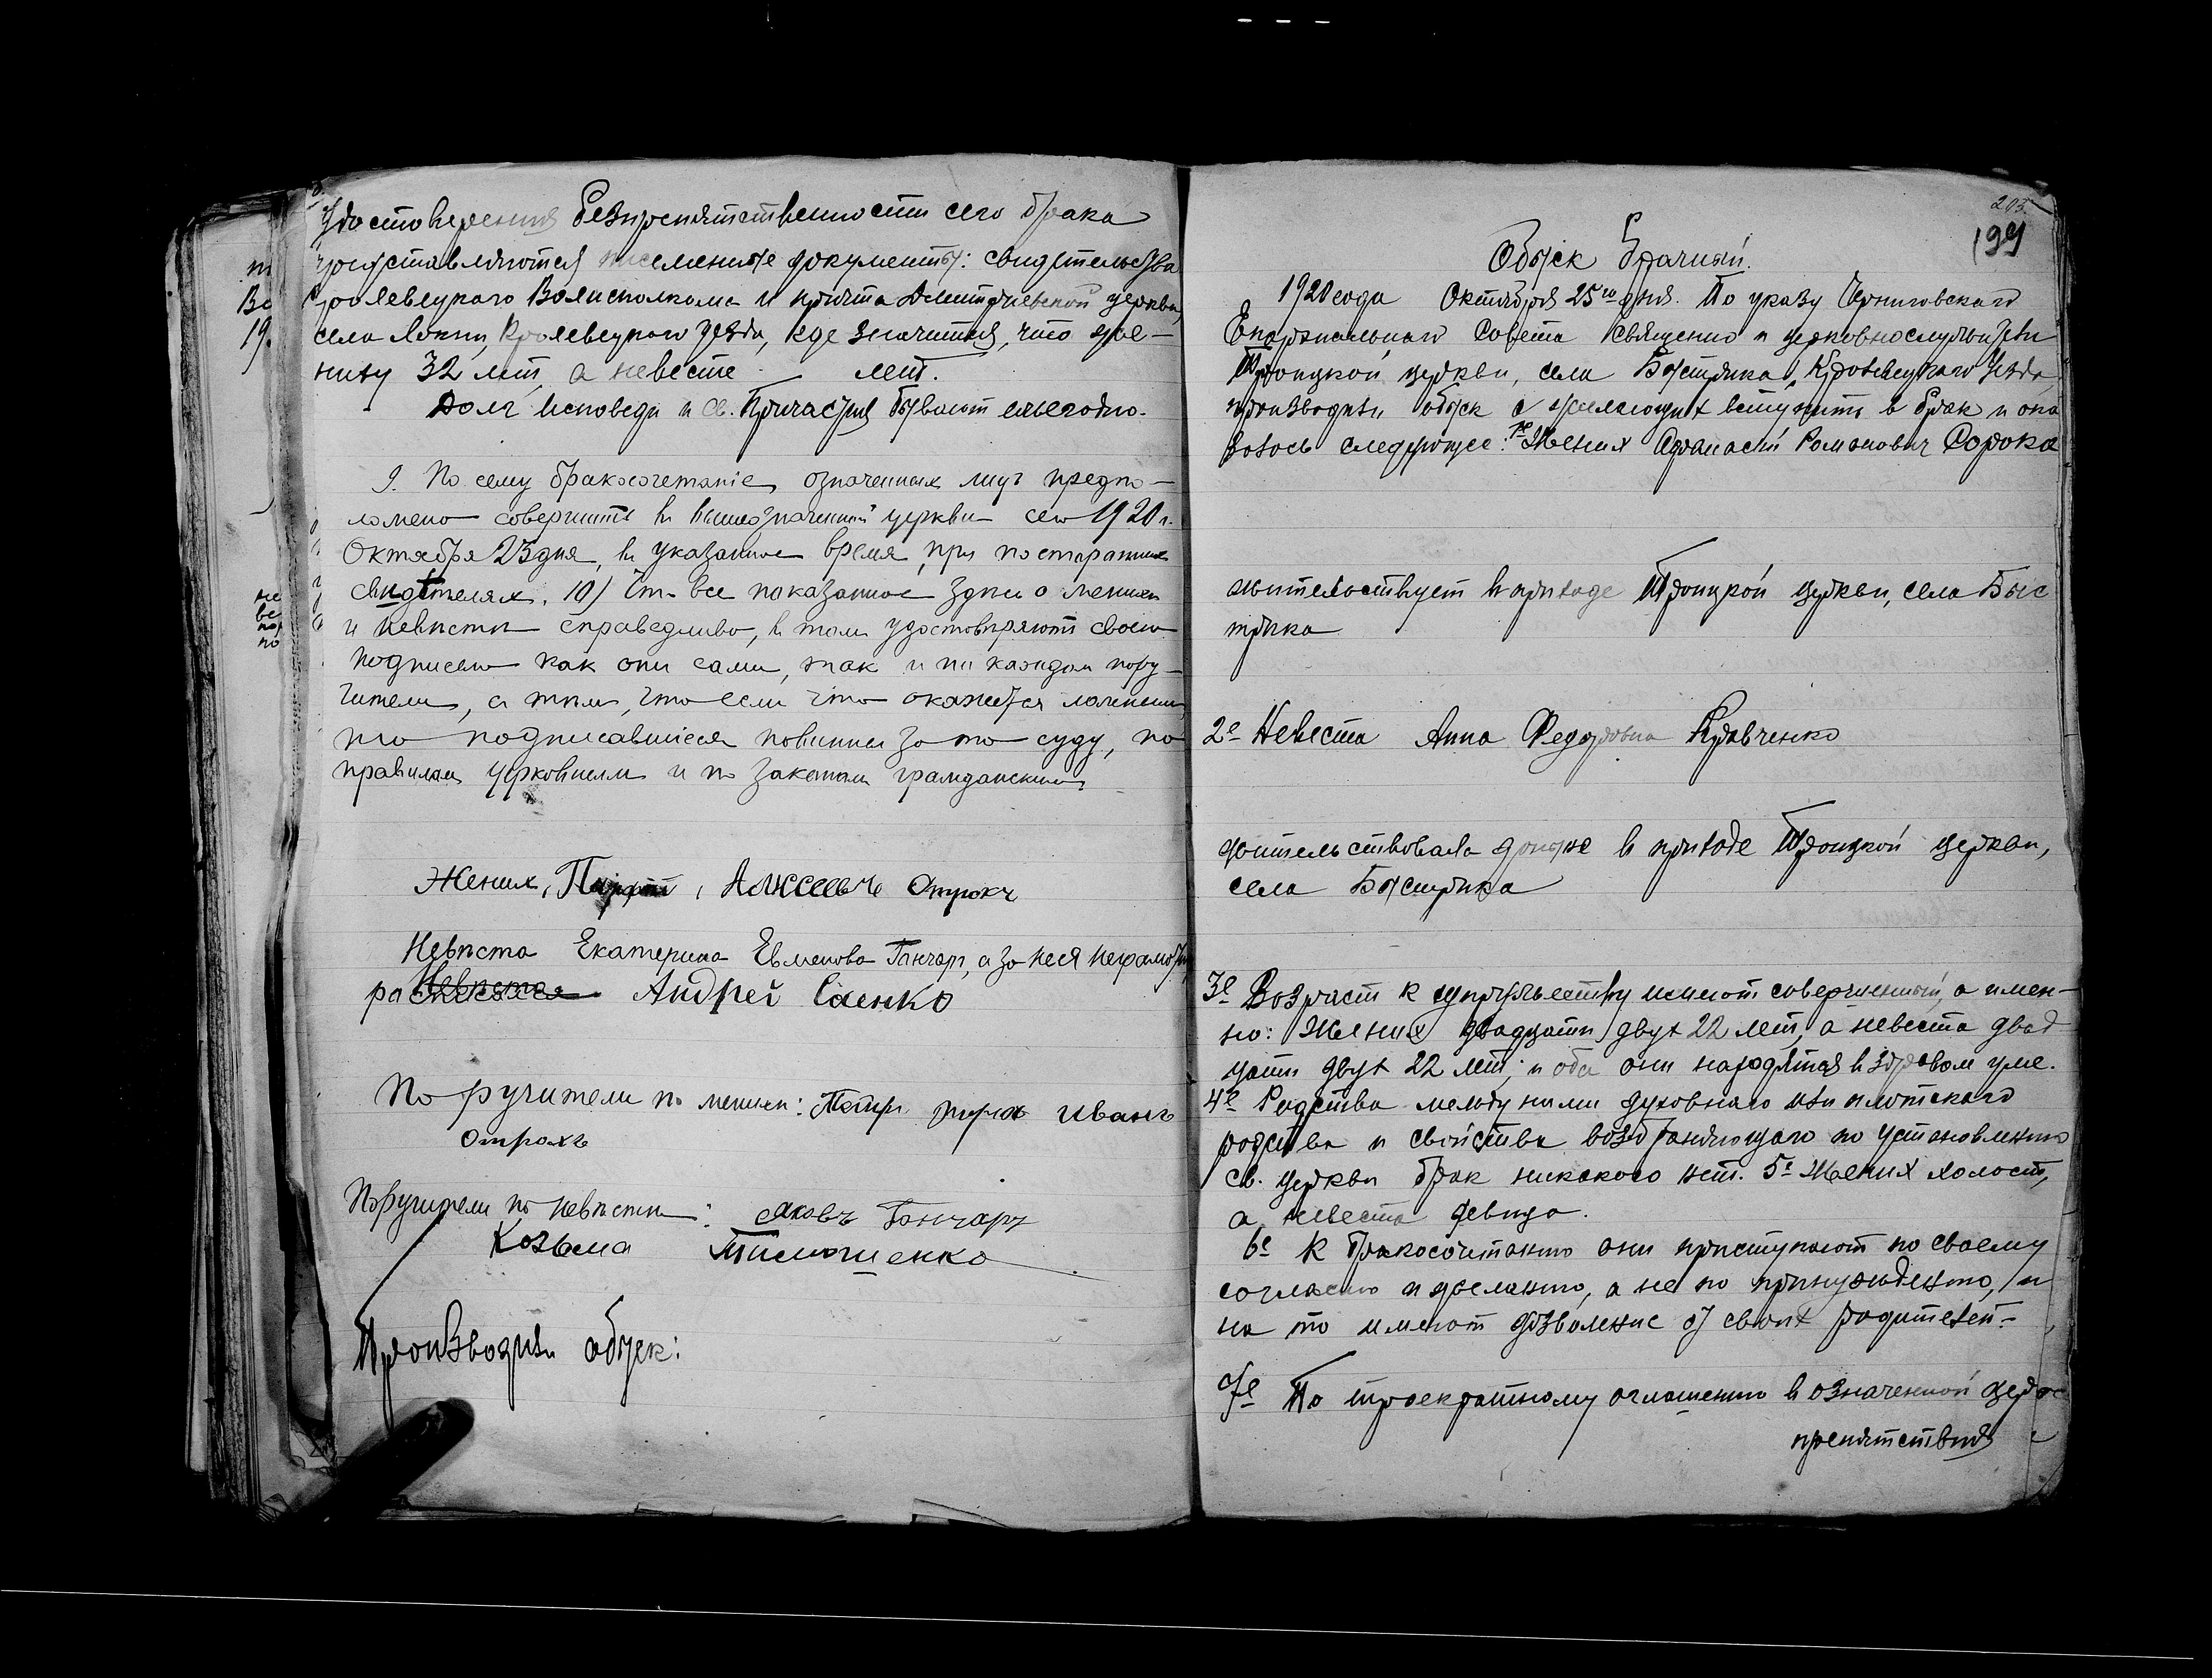 удостоверения безпрепятственности сего брака
представляются писменные документы: свидетельства
Кролевецкаго Волисполкома и причта Дмитриевской церкви,
села Локни, Кролевецкаго уезда, где значится, что же-
ниху 32 лет, а невесте лет.
Долг исповеди и св. Причастия бывают ежегодно.
9. По сему бракосочетание означенных лиц предпо-
ложено совершить в вышеозначенной церкви сего 1920 г.
Октября 23 дня, в указанное время, при посторонних
свидетелях. 10) Что все показанное здесь о женихе
и невѣсте справедливо, в том удостоверяют своею
подписью как они сами, так и по каждом пору-
чители, с тем, что если что окажется ложным,
то подписавшиеся повинны за то суду, по
правилам церковным и по законам гражданским
Жених, Алжсеевъ Отрохъ
Невѣста Екатерина Евменова Ганчар, а за нея неграмотн
расписался Андрей Саенко
Поручители по жених: Петръ Иванъ
Отрохъ
Поручители по невѣсте: Яковъ Ганчаръ
Козьма Тимошенко
Производили обыск:
203.
199
Обыск брачный.
1920 года Октября 25го дня. По указу Черниговскаго
Епархиальнаго Совета священно и церковнослужители
Троицкой церкви, села Быстрика, Кролевецкаго уезда,
производили обыск о желающих вступить в брак и ока
залось следующее: 1е Жених Афанасий Романович Сорока
жительствует в приходе Троицкой церкви, села Быс
трика
2е Невеста Анна Федоровна Кравченко
жительствовала доныне в приходе Троицкой церкви,
села Быстрика
3е Возраст к супружеству имеют совершенный, а имен-
но: жених двадцати двух 22 лет, а невеста двад
цати двух 22 лет; и оба они находятся в здравом уме.
4е Родства между ними духовнаго или плотскаго
родства и свойства возбраняющаго по установлению
св. церкви брак никакого нет. 5е Жених холост,
а невеста девица.
6е К бракосочетанию они приступают по своему
согласию и желанию, а не по принуждению, и
на то имеют дозволение от своих родителей.-
7е По троекратному оглашению в означенной церкв
препятствия